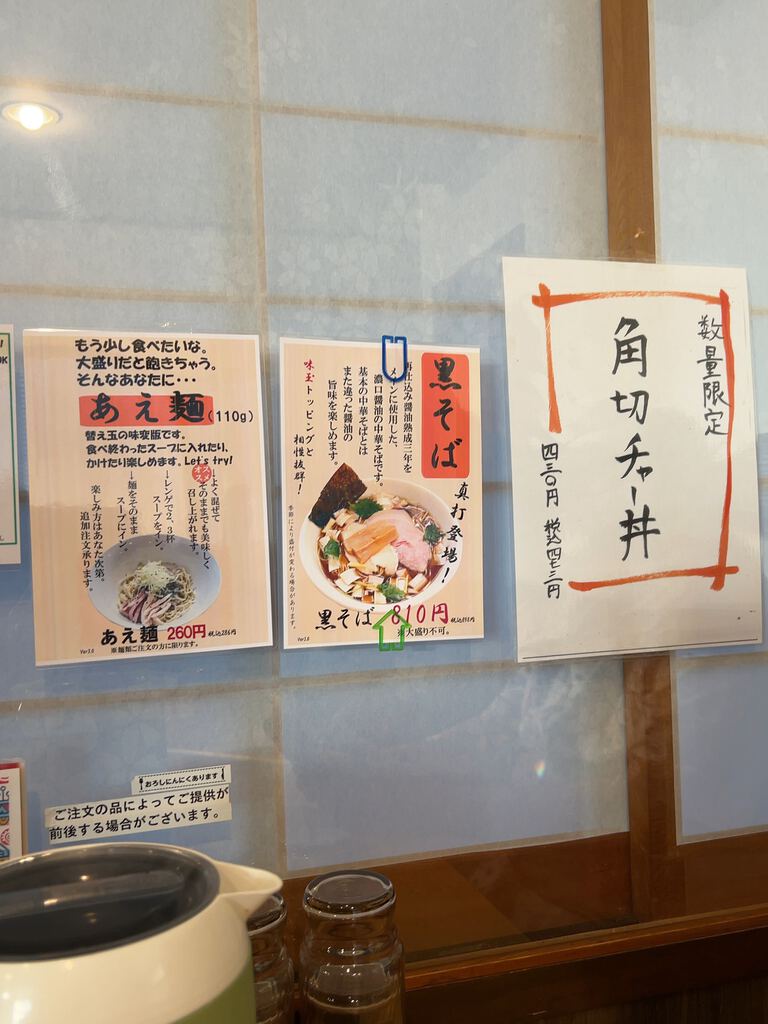 もう少し食べたいな。
大盛りだと飽きちゃう。
そんなあなたに・・・
あえ麺(110g)
替え玉の味変版です。
食べ終わったスープに入れたり、
かけたり楽しめます。Let's try!
オススメ
→よく混ぜて
そのままでも美味しく
召し上がれます。
→レンゲで2、3杯
スープをイン。
→麺をそのまま
スープにイン。
楽しみ方はあなた次第。
追加注文承ります。
あえ麺 260円 税込286円
Ver3.0 ※麺類ご注文の方に限ります。
黒そば
再仕込み醤油熟成三年を
メインに使用した、
濃口醤油の中華そばです。
基本の中華そばとは
また違った醤油の
旨味を楽しめます。
味玉トッピングと
相性抜群!
真打登場!
季節により盛付が変わる場合があります。
黒そば 810円 税込891円
Ver3.0 ※大盛り不可。
数量限定
角切チャー丼
四三〇円 税込四七三円
おろしにんにくあります
ご注文の品によってご提供が
前後する場合がございます。